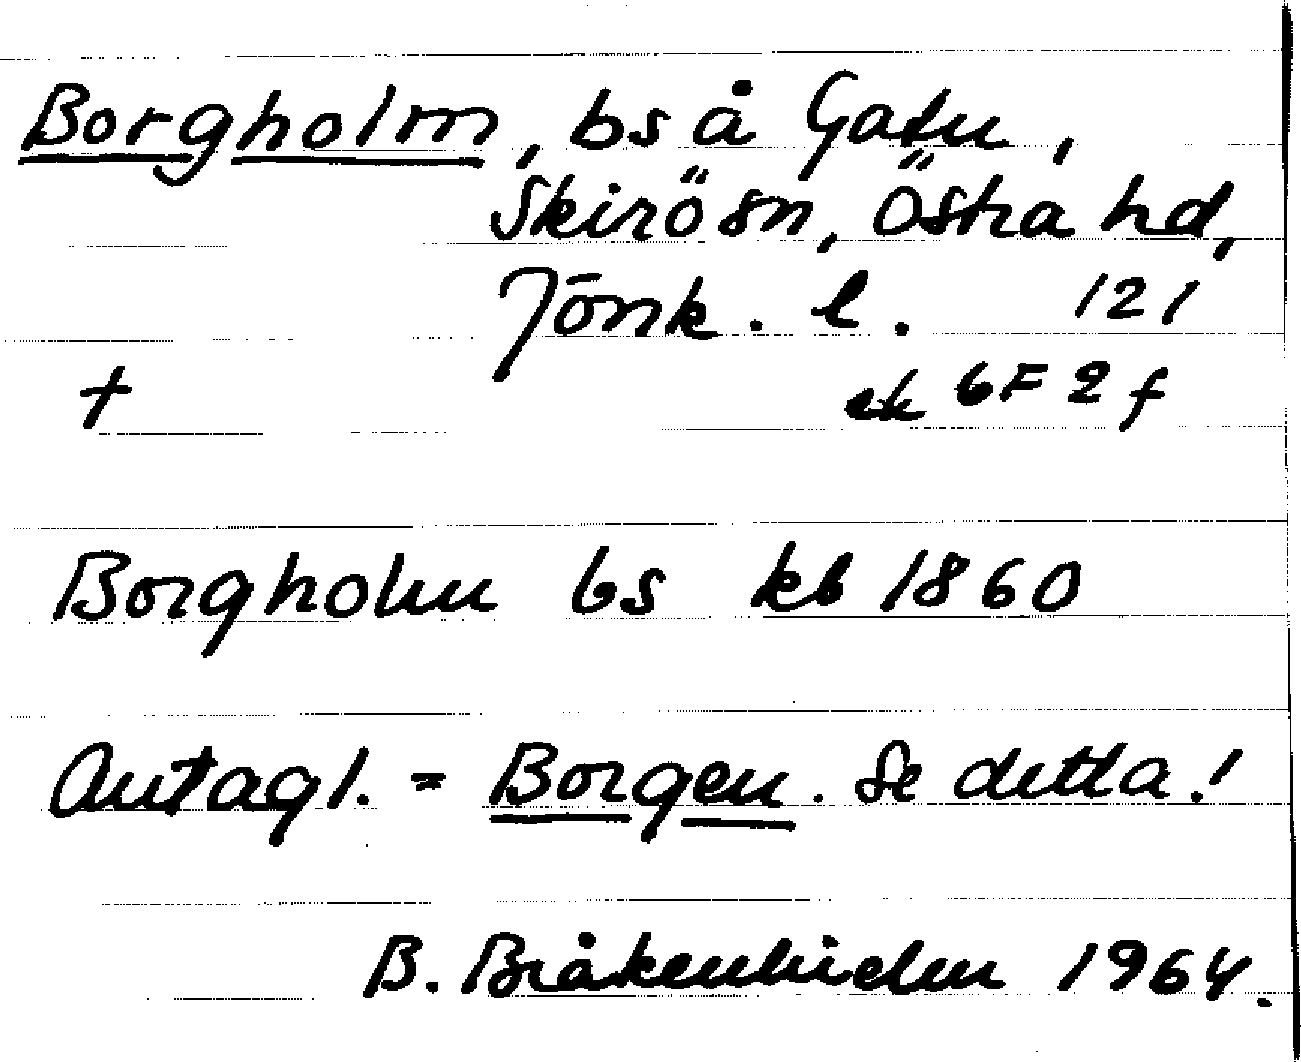 Borgholm, bs å Gatu,
Skirö sn, Östra hd,
Jönk. l. 121
† ek 6F 2f
Borgholm bs kb 1860
Antagl. = Borgen. Se detta!
B. Bråkenhielm 1964.